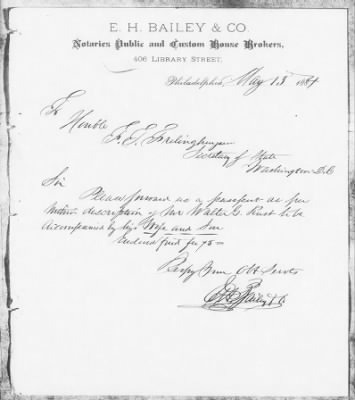 E. H. BAILEY & CO.
Notaries Public and Custom House Brokers,
406 LIBRARY STREET,
Philadelphia, May 13 1884
To
Honble
F. T. Frelinghuysen
Secretary of State
Washington D.C
Sir
Please forward us a passport as per
description of Mr Walter G. to be
accompanied by his Wife and Son
Enclosed find for $5—
Respy Your Obt Servts
E H Bailey & Co